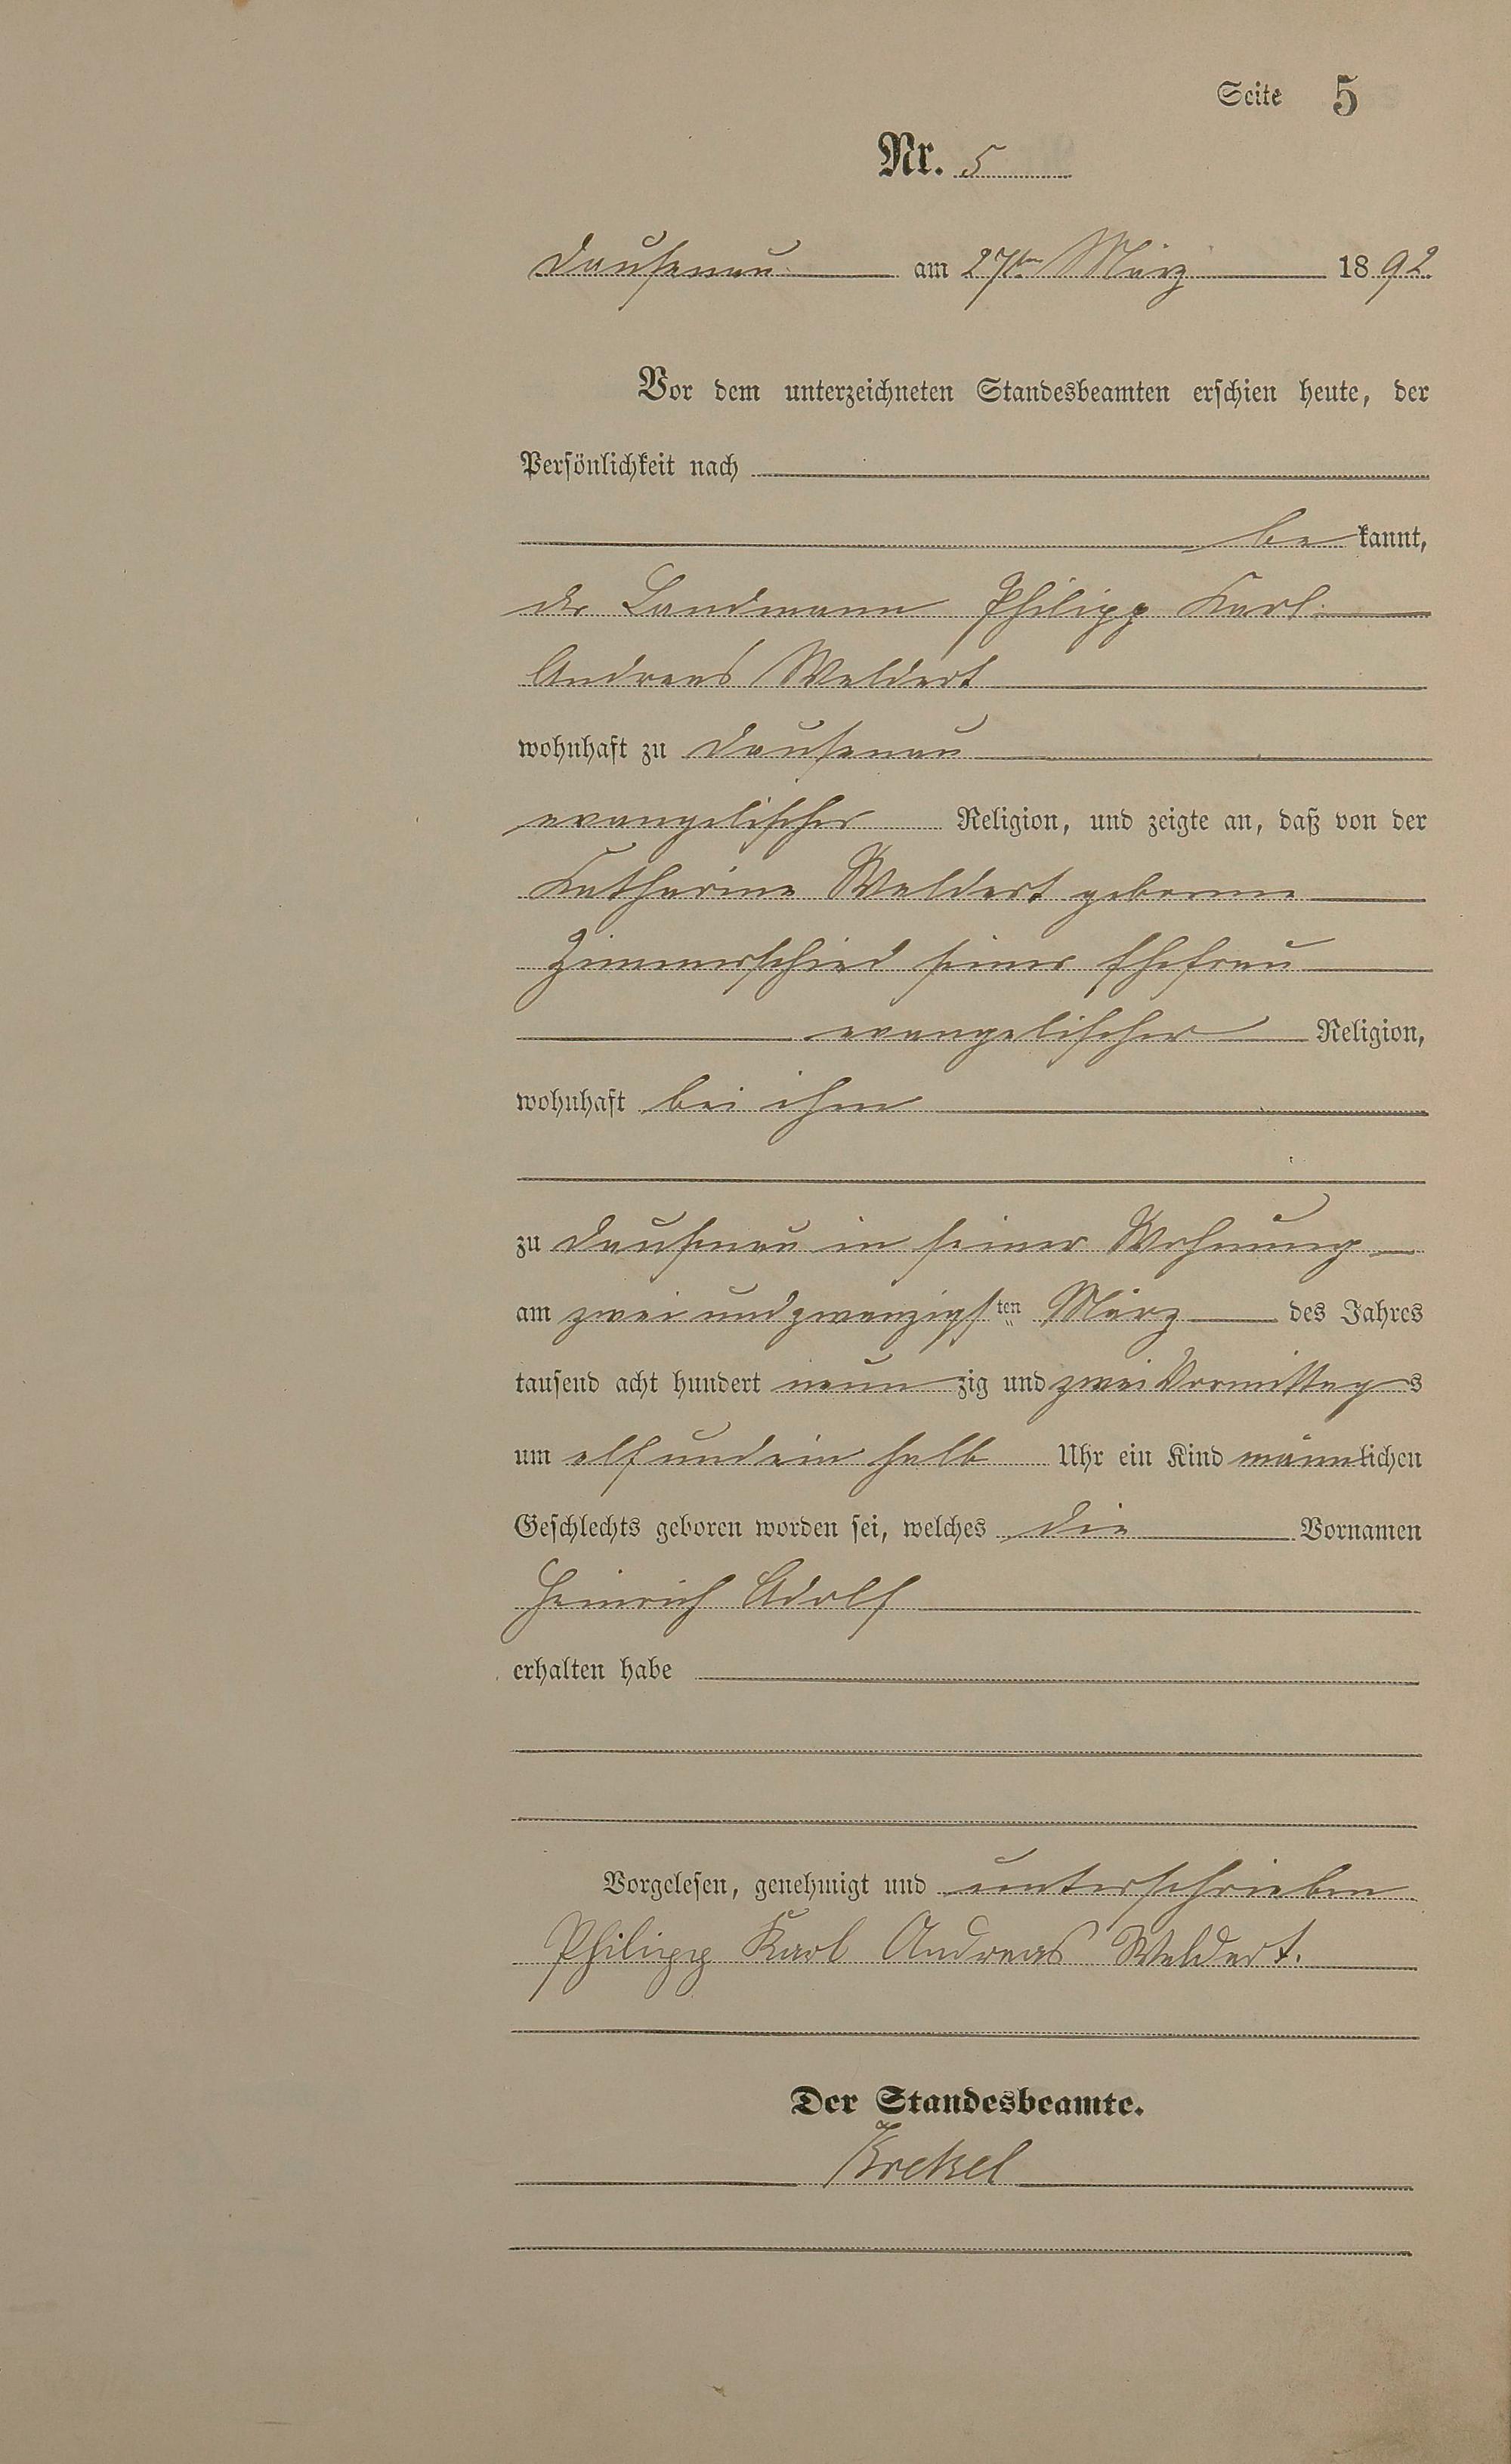 Seite 5
Nr. 5
Dausenau am 27ten März 1892.
Vor dem unterzeichneten Standesbeamten erschien heute, der
Persönlichkeit nach
bekannt,
der Landmann Philipp Karl
Andreas Weldert
wohnhaft zu Dausenau
evangelischer Religion, und zeigte an, daß von der
Katharine Weldert geborene
Zimmerschied seiner Ehefrau
evangelischer Religion,
wohnhaft bei ihm
zu Dausenau in seiner Wohnung
am zwei und zwanzigsten März des Jahres
tausend acht hundert neunzig und zwei Vormittags
um elf und ein halb Uhr ein Kind männlichen
Geschlechts geboren worden sei, welches die Vornamen
Heinrich Adolf
erhalten habe
Vorgelesen, genehmigt und unterschrieben
Philipp Karl Andreas Weldert.
Der Standesbeamte.
Krekel